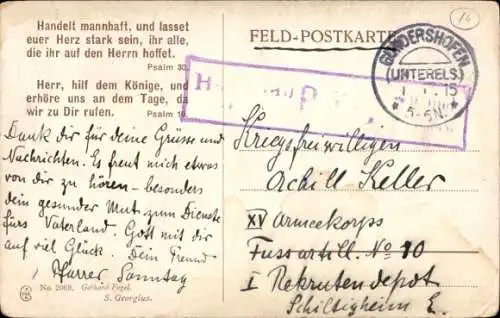 Handelt mannhaft, und lasset
euer Herz stark sein, ihr alle,
die ihr auf den Herrn hoffet.
Psalm 30.
Herr, hilf dem Könige, und
erhöre uns an dem Tage, da
wir zu Dir rufen.
Psalm
Dank dir für deine Grüsse und
Nachrichten. Es freut mich etwas
von dir zu hören - besonders
dein gesunder Mut zum Dienste
fürs Vaterland. Gott mit dir
auf viel Glück. Dein Freund
Pfarrer Sonntag
No. 2008. Gebhard Fugel.
S. Georgius.
14
FELD-POSTKARTE
GUNDERSHOFEN
(UNTERELS.)
15
5-6N.
Kriegsfreiwilligen
Achill Keller
XV Armeekorps
Fussartill. No 10
I Rekrutendepot
Schiltigheim E.